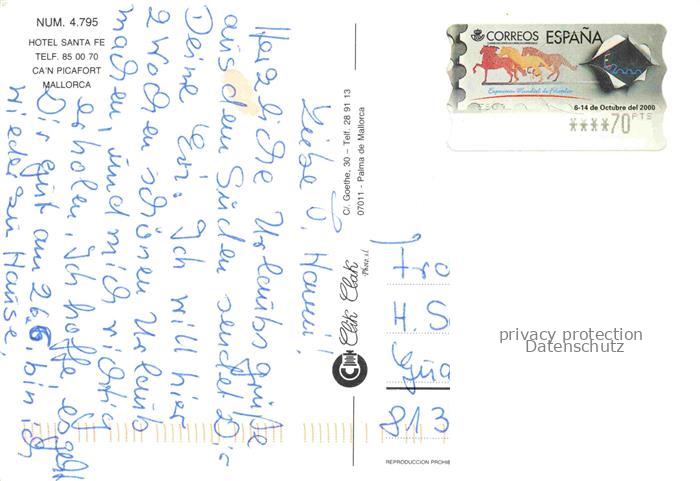 NUM. 4.795
HOTEL SANTA FE
TELF. 85 00 70
CA'N PICAFORT
MALLORCA
Liebe O. Hanni!
Herzliche Urlaubsgrüße
aus dem Süden sendet Dir
Deine Evi. Ich will hier
2 Wochen schönen Urlaub
machen, und mich richtig
erholen. Ich hoffe es geht
Dir gut am 26.6. bin ich
wieder zu Hause.
C/. Goethe, 30 – Telf. 28 91 13
07011 - Palma de Mallorca
Clik Clak
Phot, s.l.
CORREOS ESPAÑA
Exposición Mundial de Filatelia
6-14 de Octubre del 2000
****70 PTS
Fra
H. S
Gua
813
REPRODUCCION PROHIB
privacy protection
Datenschutz